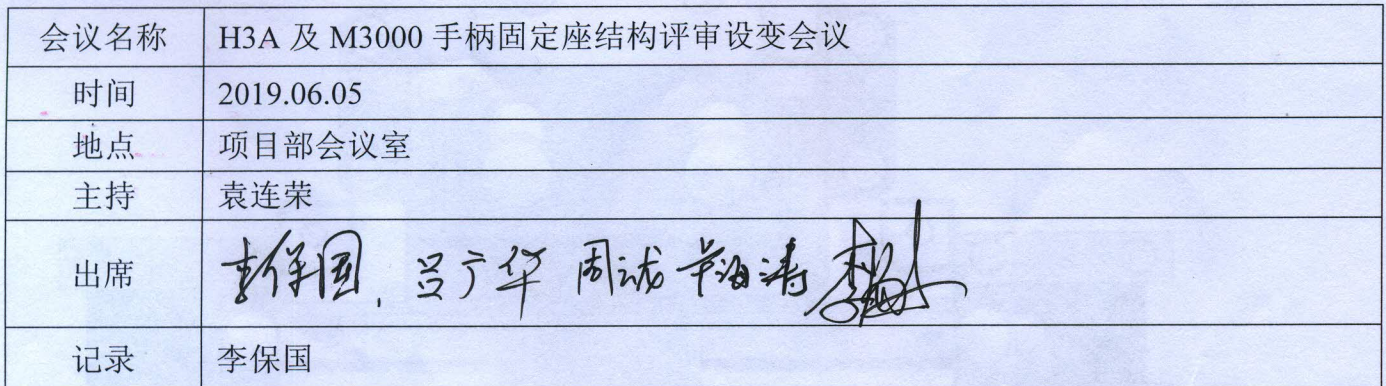 会议名称 H3A 及 M3000 手柄固定座结构评审设变会议
时间 2019.06.05
地点 项目部会议室
主持 袁连荣
出席 李保国, 吕广华 周斌 毕海涛
记录 李保国